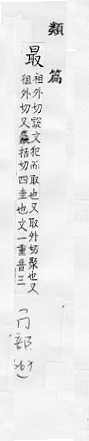 類篇
最
祖外切說文犯而取也又取外切聚也又
祖外切又麤括切四圭也文一重音三
冂部